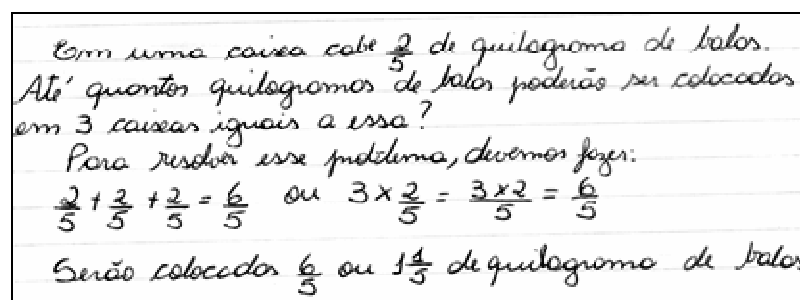 Em uma caixa cabe 2/5 de quilograma de balas.
Até quantos quilogramas de balas poderão ser colocados
em 3 caixas iguais a essa?
Para resolver esse problema, devemos fazer:
2/5 + 2/5 + 2/5 = 6/5 ou 3 × 2/5 = 3×2/5 = 6/5
Serão colocados 6/5 ou 1 1/5 de quilograma de balas